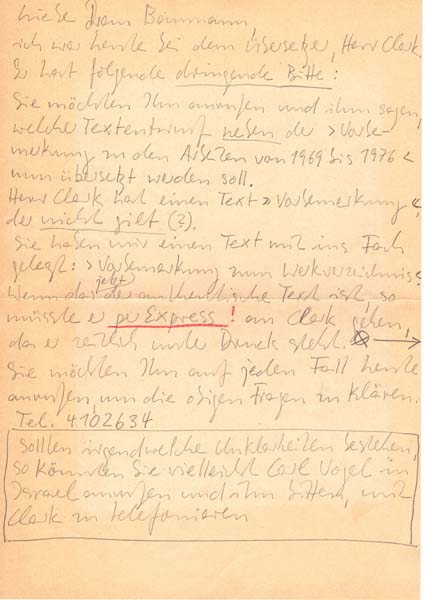 Liebe Frau Baumann,
ich war heute bei dem Übersetzer, Herr Clark.
Er hat folgende dringende Bitte:
Sie möchten ihn anrufen und ihm sagen,
welcher Textentwurf neben der >Vorbe-
merkung zu den Arbeiten von 1969 bis 1976<
nun übersetzt werden soll.
Herr Clark hat einen Text >Vorbemerkung<,
der nicht gilt (?).
Sie haben mir einen Text mit ins Fach
gelegt: >Vorbemerkung zum Werkverzeichnis<
Wenn das jetzt der authentische Text ist, so
müsste er per Express! an Clark gehen,
da er zeitlich unter Druck steht. →
Sie möchten ihn auf jeden Fall heute
anrufen, um die obigen Fragen zu klären.
Tel. 4102634
Sollten irgendwelche Unklarheiten bestehen,
so könnten Sie vielleicht Carl Vogel in
Israel anrufen und ihn bitten, mit
Clark zu telefonieren